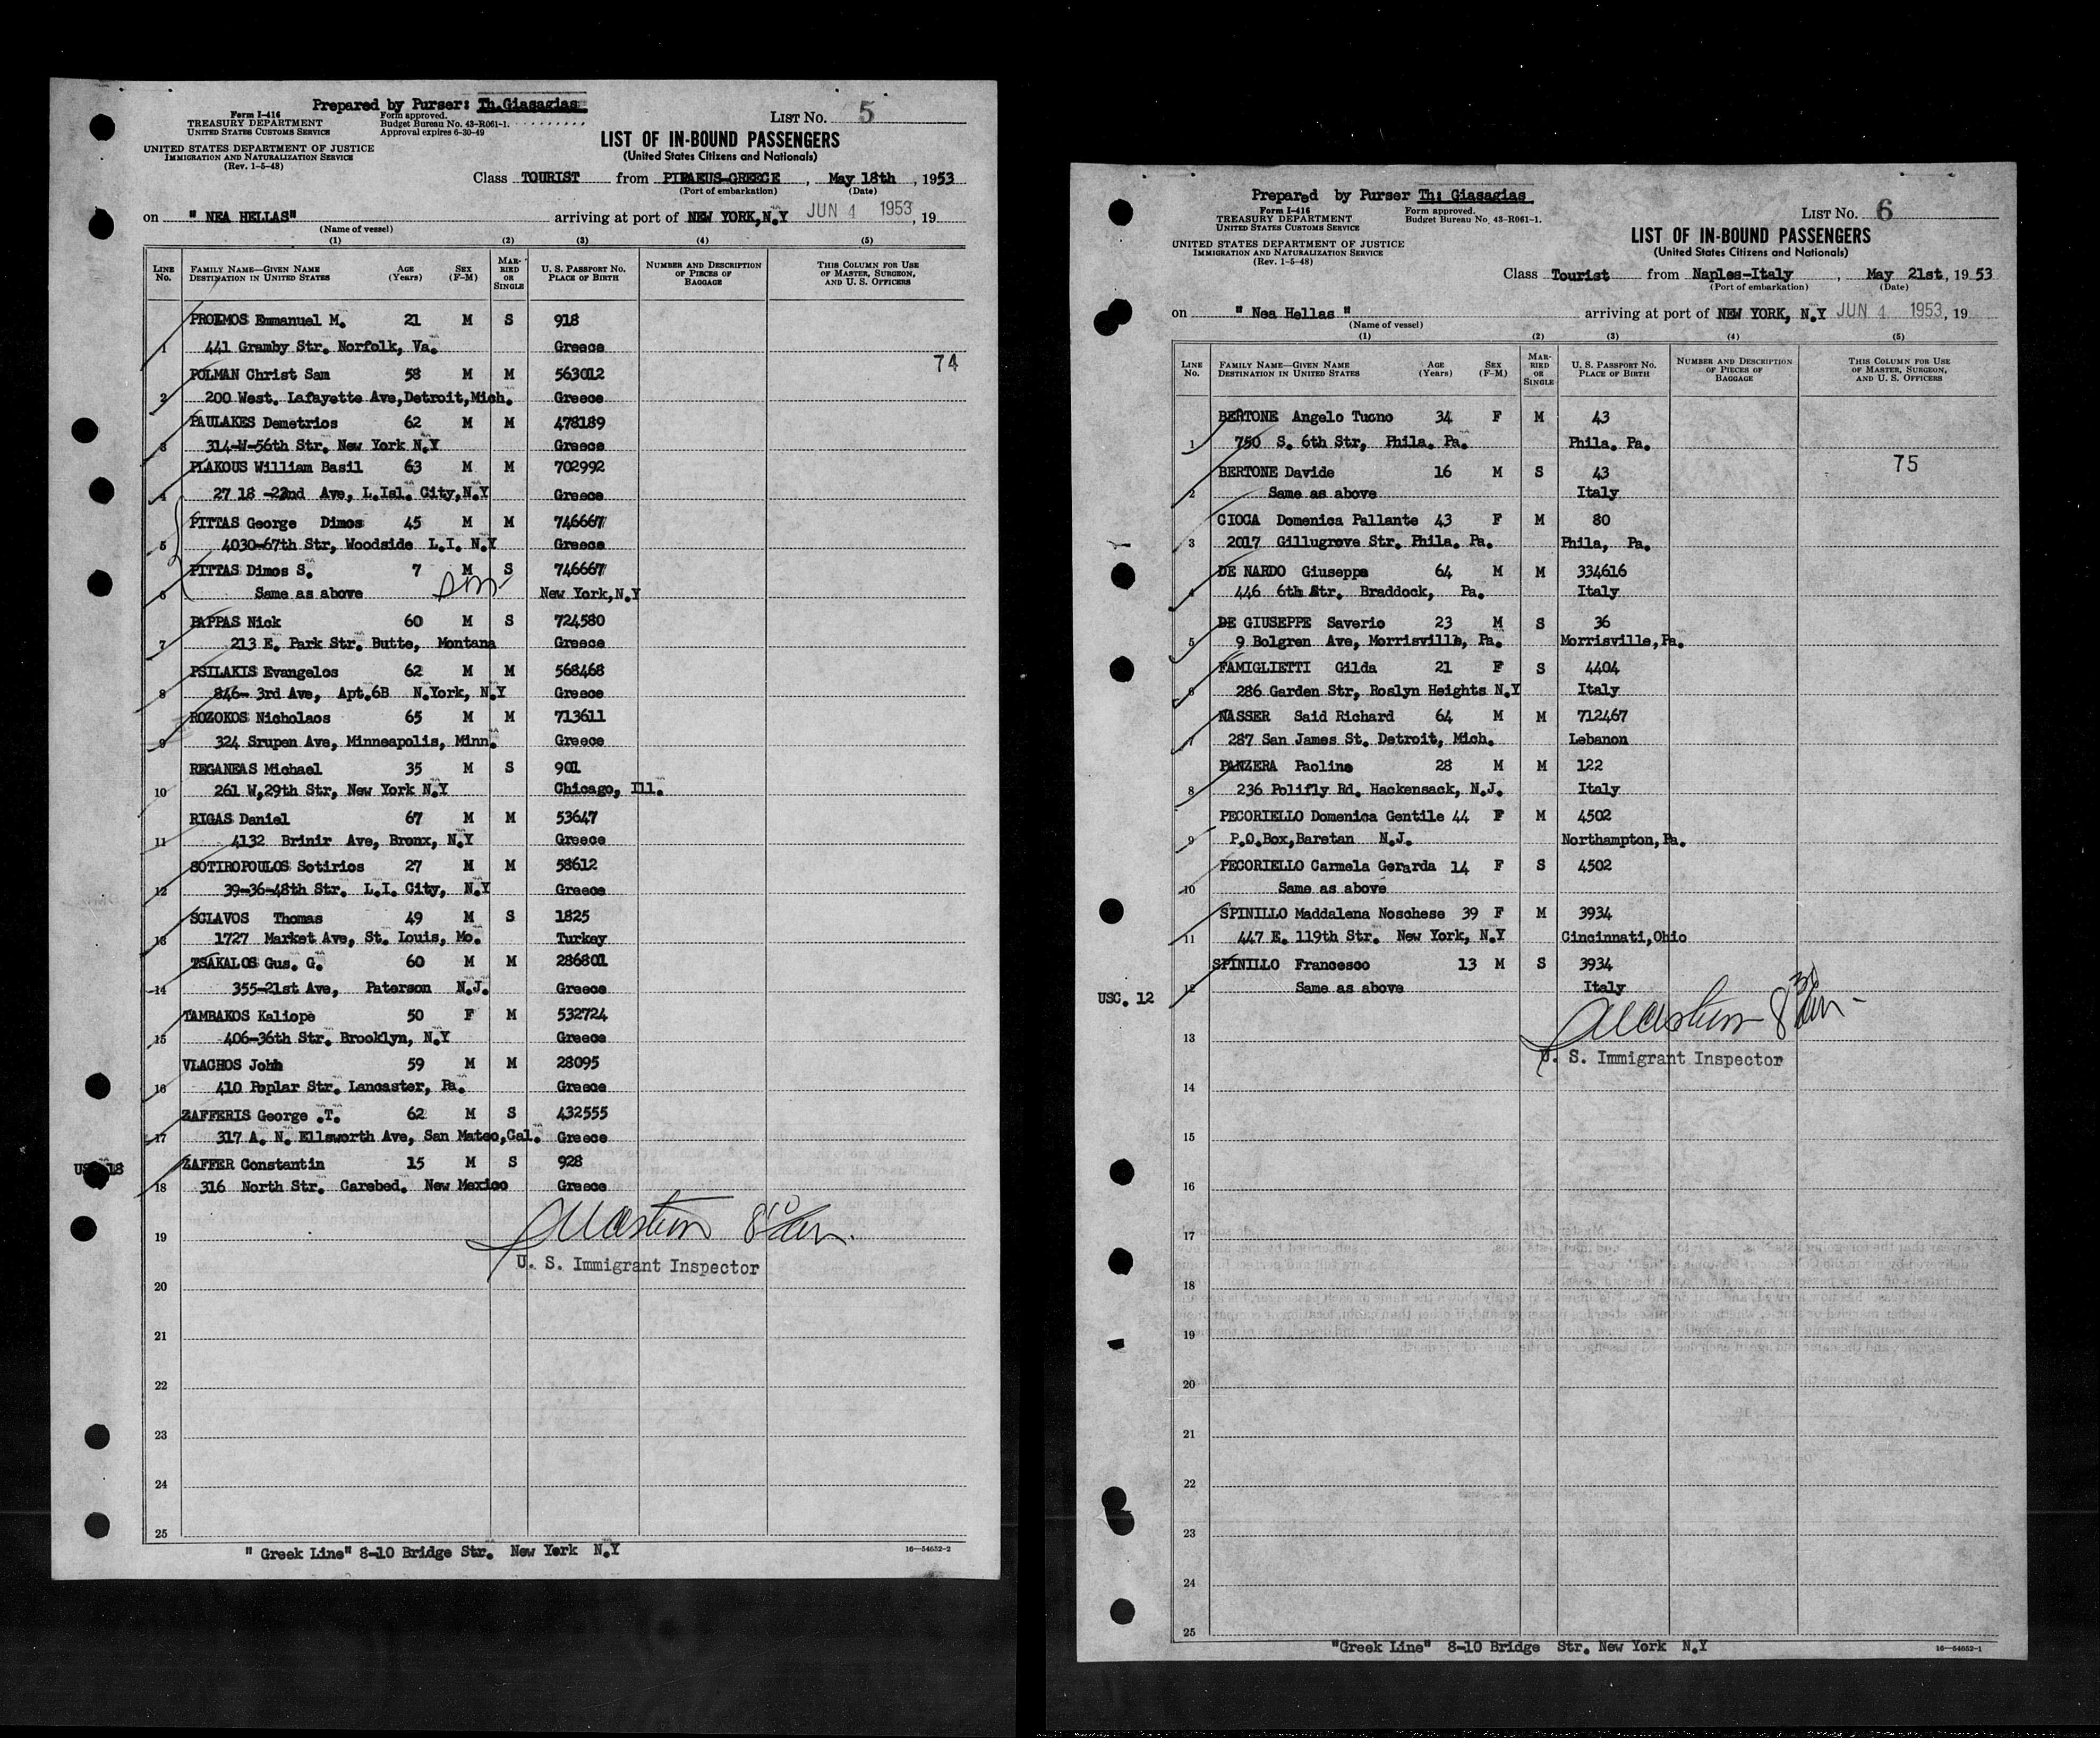 Prepared by Purser: Th.Giasagias
Form I-416
TREASURY DEPARTMENT
UNITED STATES CUSTOMS SERVICE
Form approved.
Budget Bureau No. 43-R061-1.
Approval expires 6-30-49
LIST NO. 5
UNITED STATES DEPARTMENT OF JUSTICE
IMMIGRATION AND NATURALIZATION SERVICE
(Rev. 1-5-48)
LIST OF IN-BOUND PASSENGERS
(United States Citizens and Nationals)
Class TOURIST from PIRAEUS-GREECE, May 18th, 1953
(Port of embarkation) (Date)
on " NEA HELLAS" arriving at port of NEW YORK,N.Y JUN 4 1953, 19
(Name of vessel)
(1) (2) (3) (4) (5)
LINE No. FAMILY NAME—GIVEN NAME DESTINATION IN UNITED STATES AGE (Years) SEX (F-M) MARRIED OR SINGLE U. S. PASSPORT NO. PLACE OF BIRTH NUMBER AND DESCRIPTION OF PIECES OF BAGGAGE THIS COLUMN FOR USE OF MASTER, SURGEON, AND U. S. OFFICERS
PROIMOS Emmanuel M. 21 M S 918
1 441 Gramby Str. Norfolk, Va. Greece
74
POLMAN Christ Sam 58 M M 563012
2 200 West. Lafayette Ave,Detroit,Mich. Greece
PAULAKES Demetrios 62 M M 478189
3 314-W-56th Str. New York N.Y Greece
PLAKOUS William Basil 63 M M 702992
4 27 18 -22nd Ave, L.Isl. City,N.Y Greece
PITTAS George Dimos 45 M M 746667
5 4030-67th Str, Woodside L.I. N.Y Greece
PITTAS Dimos S. 7 M S 746667
6 Same as above Son New York,N.Y
PAPPAS Nick 60 M S 724580
7 213 E. Park Str. Butte, Montana Greece
PSILAKIS Evangelos 62 M M 568468
8 846- 3rd Ave, Apt.6B N.York, N.Y Greece
ROZOKOS Nicholaos 65 M M 713611
9 324 Srupen Ave, Minneapolis, Minn. Greece
REGANEAS Michael 35 M S 901
10 261 W,29th Str, New York N.Y Chicago, Ill.
RIGAS Daniel 67 M M 53647
11 4132 Brinir Ave, Bronx, N.Y Greece
SOTIROPOULOS Sotirios 27 M M 58612
12 39-36-48th Str. L.I. City, N.Y Greece
SCLAVOS Thomas 49 M S 1825
13 1727 Market Ave, St. Louis, Mo. Turkey
TSAKALOS Gus. G. 60 M M 286801
14 355-21st Ave, Paterson N.J. Greece
TAMBAKOS Kaliope 50 F M 532724
15 406-36th Str. Brooklyn, N.Y Greece
VLACHOS John 59 M M 28095
16 410 Poplar Str. Lancaster, Pa. Greece
ZAFFERIS George .T. 62 M S 432555
17 317 A. N. Ellsworth Ave, San Mateo,Cal. Greece
ZAFFER Constantin 15 M S 928
18 316 North Str. Carebed. New Mexico Greece
19
U. S. Immigrant Inspector
20
21
22
23
24
25
" Greek Line" 8-10 Bridge Str. New York N.Y
16—54652-2
Prepared by Purser Th: Giasagias
Form I-416
TREASURY DEPARTMENT
UNITED STATES CUSTOMS SERVICE
Form approved.
Budget Bureau No. 43-R061-1.
LIST NO. 6
UNITED STATES DEPARTMENT OF JUSTICE
IMMIGRATION AND NATURALIZATION SERVICE
(Rev. 1-5-48)
LIST OF IN-BOUND PASSENGERS
(United States Citizens and Nationals)
Class Tourist from Naples-Italy, May 21st, 1953
(Port of embarkation) (Date)
on " Nea Hellas " arriving at port of NEW YORK, N.Y JUN 4 1953, 19
(Name of vessel)
(1) (2) (3) (4) (5)
LINE No. FAMILY NAME—GIVEN NAME DESTINATION IN UNITED STATES AGE (Years) SEX (F-M) MARRIED OR SINGLE U. S. PASSPORT NO. PLACE OF BIRTH NUMBER AND DESCRIPTION OF PIECES OF BAGGAGE THIS COLUMN FOR USE OF MASTER, SURGEON, AND U. S. OFFICERS
BERTONE Angelo Tucno 34 F M 43
1 750 S. 6th Str, Phila. Pa. Phila. Pa.
75
BERTONE Davide 16 M S 43
2 Same as above Italy
CIOCA Domenica Pallante 43 F M 80
3 2017 Gillugrove Str. Phila. Pa. Phila, Pa.
DE NARDO Giuseppe 64 M M 334616
4 446 6th Str. Braddock, Pa. Italy
DE GIUSEPPE Saverio 23 M S 36
5 9 Bolgren Ave, Morrisville, Pa. Morrisville,Pa.
FAMIGLIETTI Gilda 21 F S 4404
6 286 Garden Str, Roslyn Heights N.Y Italy
NASSER Said Richard 64 M M 712467
7 287 San James St. Detroit, Mich. Lebanon
PANZERA Paolino 28 M M 122
8 236 Polifly Rd. Hackensack, N.J. Italy
PECORIELLO Domenica Gentile 44 F M 4502
9 P.O.Box,Baretan N.J. Northampton,Pa.
PECORIELLO Carmela Gerarda 14 F S 4502
10 Same as above
SPINILLO Maddalena Noschese 39 F M 3934
11 447 E. 119th Str. New York, N.Y Cincinnati,Ohio
SPINILLO Francesco 13 M S 3934
USC. 12
12 Same as above Italy
13
U. S. Immigrant Inspector
14
15
16
17
18
19
20
21
22
23
24
25
"Greek Line" 8-10 Bridge Str. New York N.Y
16—54652-1